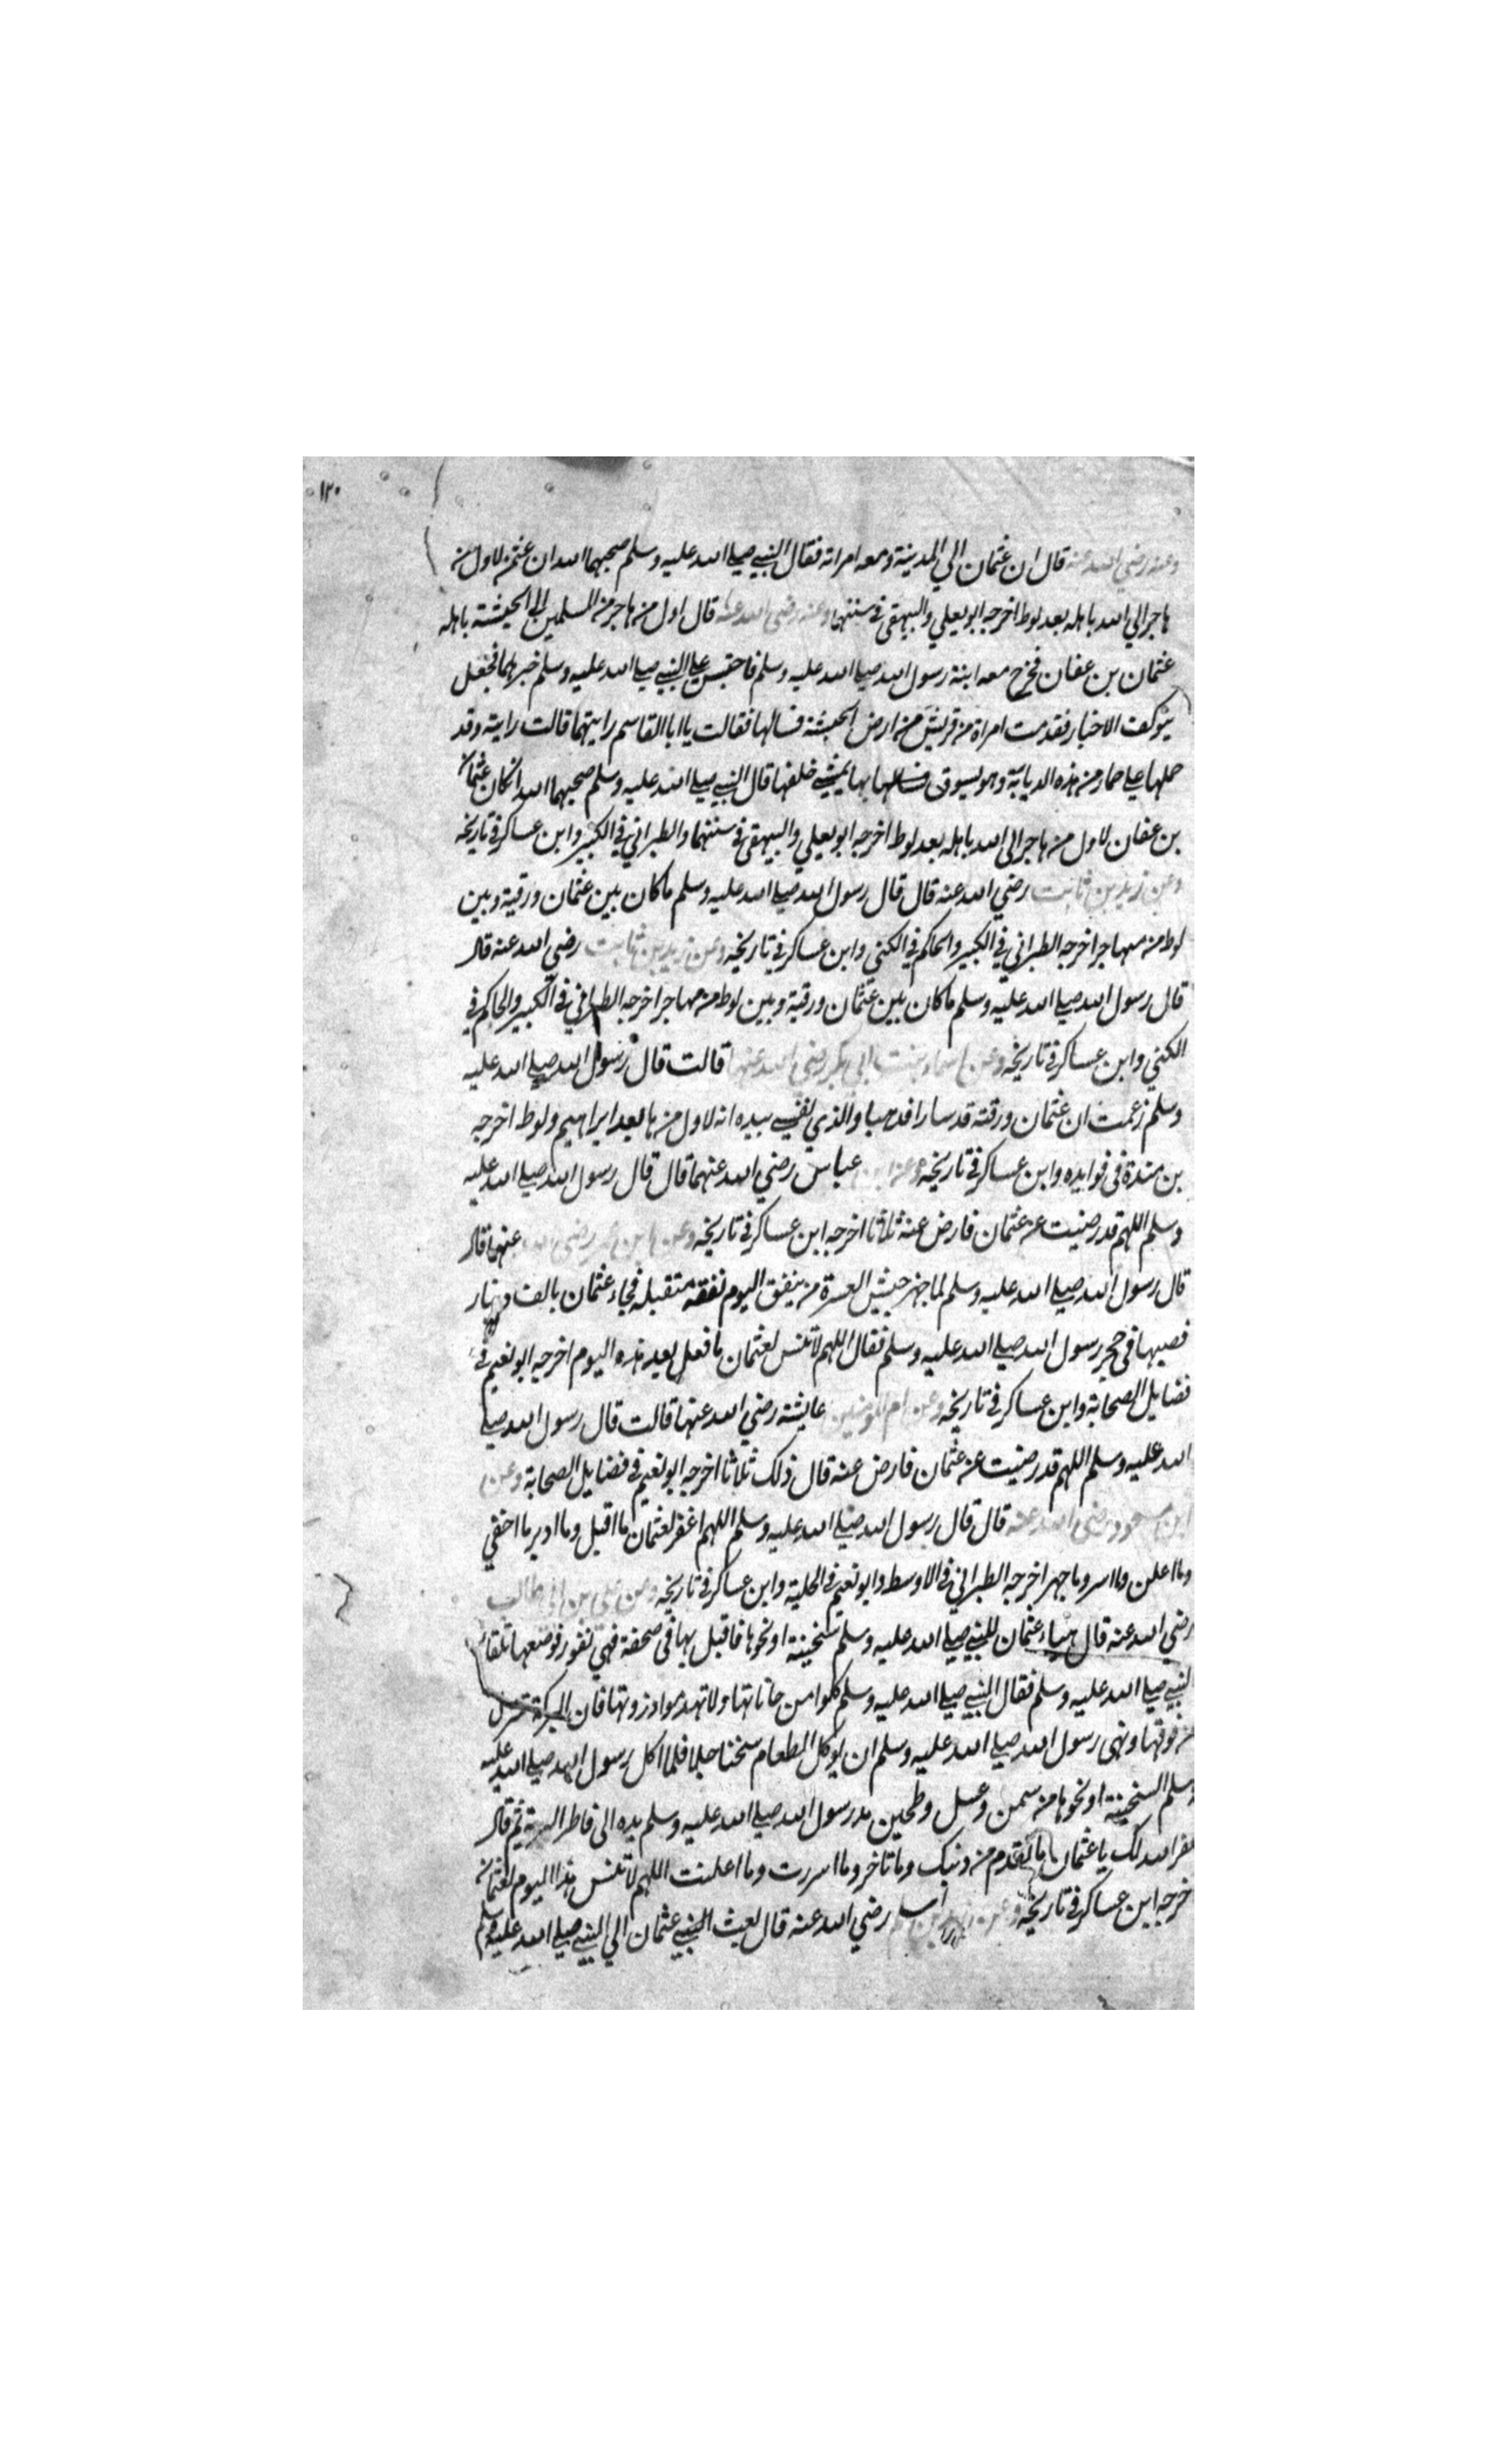 ١٢٠
وعنه رضي الله عنه قال ان عثمان الي المدينة ومعه امراته فقال النبي صلي الله عليه وسلم صحبهما الله ان عثمن لاول من
هاجر الي الله باهله بعد لوط اخرجه ابو يعلي والبيهقي في سننهما وعنه رضي الله عنه قال اول من هاجر من المسلمين الي الحبشة باهله
عثمان بن عفان فخرج معه ابنة رسول الله صلي الله عليه وسلم فاحتبس علي النبي صلي الله عليه وسلم خبرهما فجعل
يتوكف الاخبار فقدمت امراة من قريش من ارض الحبشة فسالها فقالت يا ابا القاسم رايتهما قالت رايته وقد
حملها علي حمار من هذه الدبابة وهو يسوق بها يمشي خلفها قال النبي صلي الله عليه وسلم صحبهما الله ان كان عثمان
بن عفان لاول من هاجر الي الله باهله بعد لوط اخرجه ابو يعلي والبيهقي في سننهما والطبراني في الكبير وابن عساكر في تاريخه
وعن زيد بن ثابت رضي الله عنه قال قال رسول الله صلي الله عليه وسلم ما كان بين عثمان ورقية وبين
لوط من مهاجر اخرجه الطبراني في الكبير والحاكم في الكني وابن عساكر في تاريخه وعن زيد بن ثابت رضي الله عنه قال
قال رسول الله صلي الله عليه وسلم ما كان بين عثمان ورقية وبين لوط من مهاجر اخرجه الطبراني في الكبير والحاكم في
الكني وابن عساكر في تاريخه وعن اسماء بنت ابي بكر رضي الله عنها قالت قال رسول الله صلي الله عليه
وسلم زعمت ان عثمان ورقية قد سارا فذهبا والذي نفسي بيده انه لاول من هاجر بعد ابراهيم ولوط اخرجه
بن مندة في فوايده وابن عساكر في تاريخه وعن ابن عباس رضي الله عنهما قال قال رسول الله صلي الله عليه
وسلم اللهم قد رضيت عن عثمان فارض عنه ثلاثا اخرجه ابن عساكر في تاريخه وعن ابن عمر رضي الله عنهما قال
قال رسول الله صلي الله عليه وسلم لما جهز جيش العسرة من ينفق اليوم نفقة متقبلة فجاء عثمان بالف دينار
فصبها في حجر رسول الله صلي الله عليه وسلم فقال اللهم لا تنس لعثمان ما فعل بعد هذه اليوم اخرجه ابو نعيم في
فضايل الصحابة وابن عساكر في تاريخه وعن ام المومنين عايشة رضي الله عنها قالت قال رسول الله صلي
الله عليه وسلم اللهم قد رضيت عن عثمان فارض عنه قال ذلك ثلاثا اخرجه ابو نعيم في فضايل الصحابة وعن
ابن مسعود رضي الله عنه قال قال رسول الله صلي الله عليه وسلم اللهم اغفر لعثمان ما اقبل وما ادبر ما اخفي
وما اعلن وما اسر وما جهر اخرجه الطبراني في الاوسط وابو نعيم في الحلية وابن عساكر في تاريخه وعن علي بن ابي طالب
رضي الله عنه قال هياء عثمان للنبي صلي الله عليه وسلم سخينة او نحوها فاقبل بها في صحفة فهي تفور فوضعها تلقا
النبي صلي الله عليه وسلم فقال النبي صلي الله عليه وسلم كلوا من حافاتها ولا تهدموا ذروتها فان البركة تنزل
من فوقها ونهي رسول الله صلي الله عليه وسلم ان يوكل الطعام سخنا فلما اكل رسول الله صلي الله عليه
وسلم السخينة او نحوها من سمن وعسل وطحين مد رسول الله صلي الله عليه وسلم يده الي فاطر البرية ثم قال
غفر الله لك يا عثمان ما تقدم من ذنبك وما تاخر وما اسررت وما اعلنت اللهم لا تنس هذا اليوم لعثمان
خرجه ابن عساكر في تاريخه وعن زيد بن اسلم رضي الله عنه قال بعث عثمان الي النبي صلي الله عليه وسلم